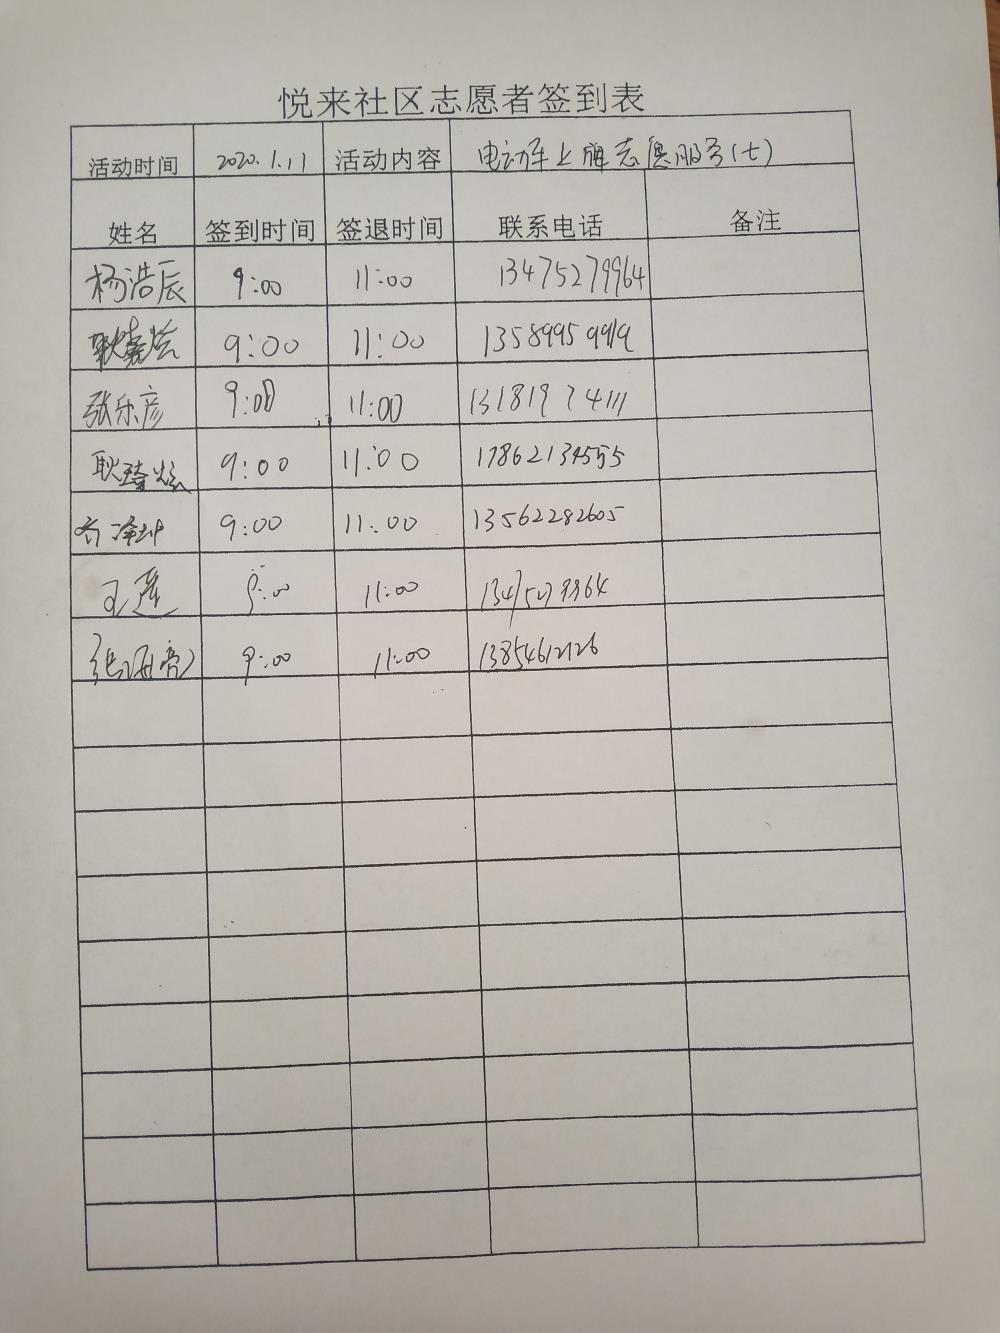 悦来社区志愿者签到表
活动时间 2020.1.11 活动内容 电动车上牌志愿服务(七)
姓名 签到时间 签退时间 联系电话 备注
杨浩辰 9:00 11:00 13475279964
9:00 11:00 13589959919
张乐彦 9:00 11:00 13181974111
耿琦炫 9:00 11:00 17862134555
齐泽 9:00 11:00 13562282605
王莲 9:00 11:00 13475279964
张海亮 9:00 11:00 13854612126